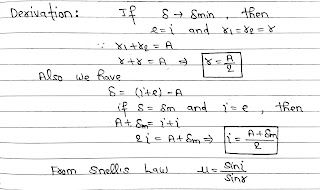 Derivation: If δ → δmin, then
e=i and r₁=r₂=r
∵ r₁+r₂ = A
r+r = A ⇒ r = A/2
Also we have
δ = (i+e) -A
if δ = δm and i = e, then
A+δm = i+i
2i = A+δm ⇒ i = A+δm/2
From Snell's Law μ = sini/sinr